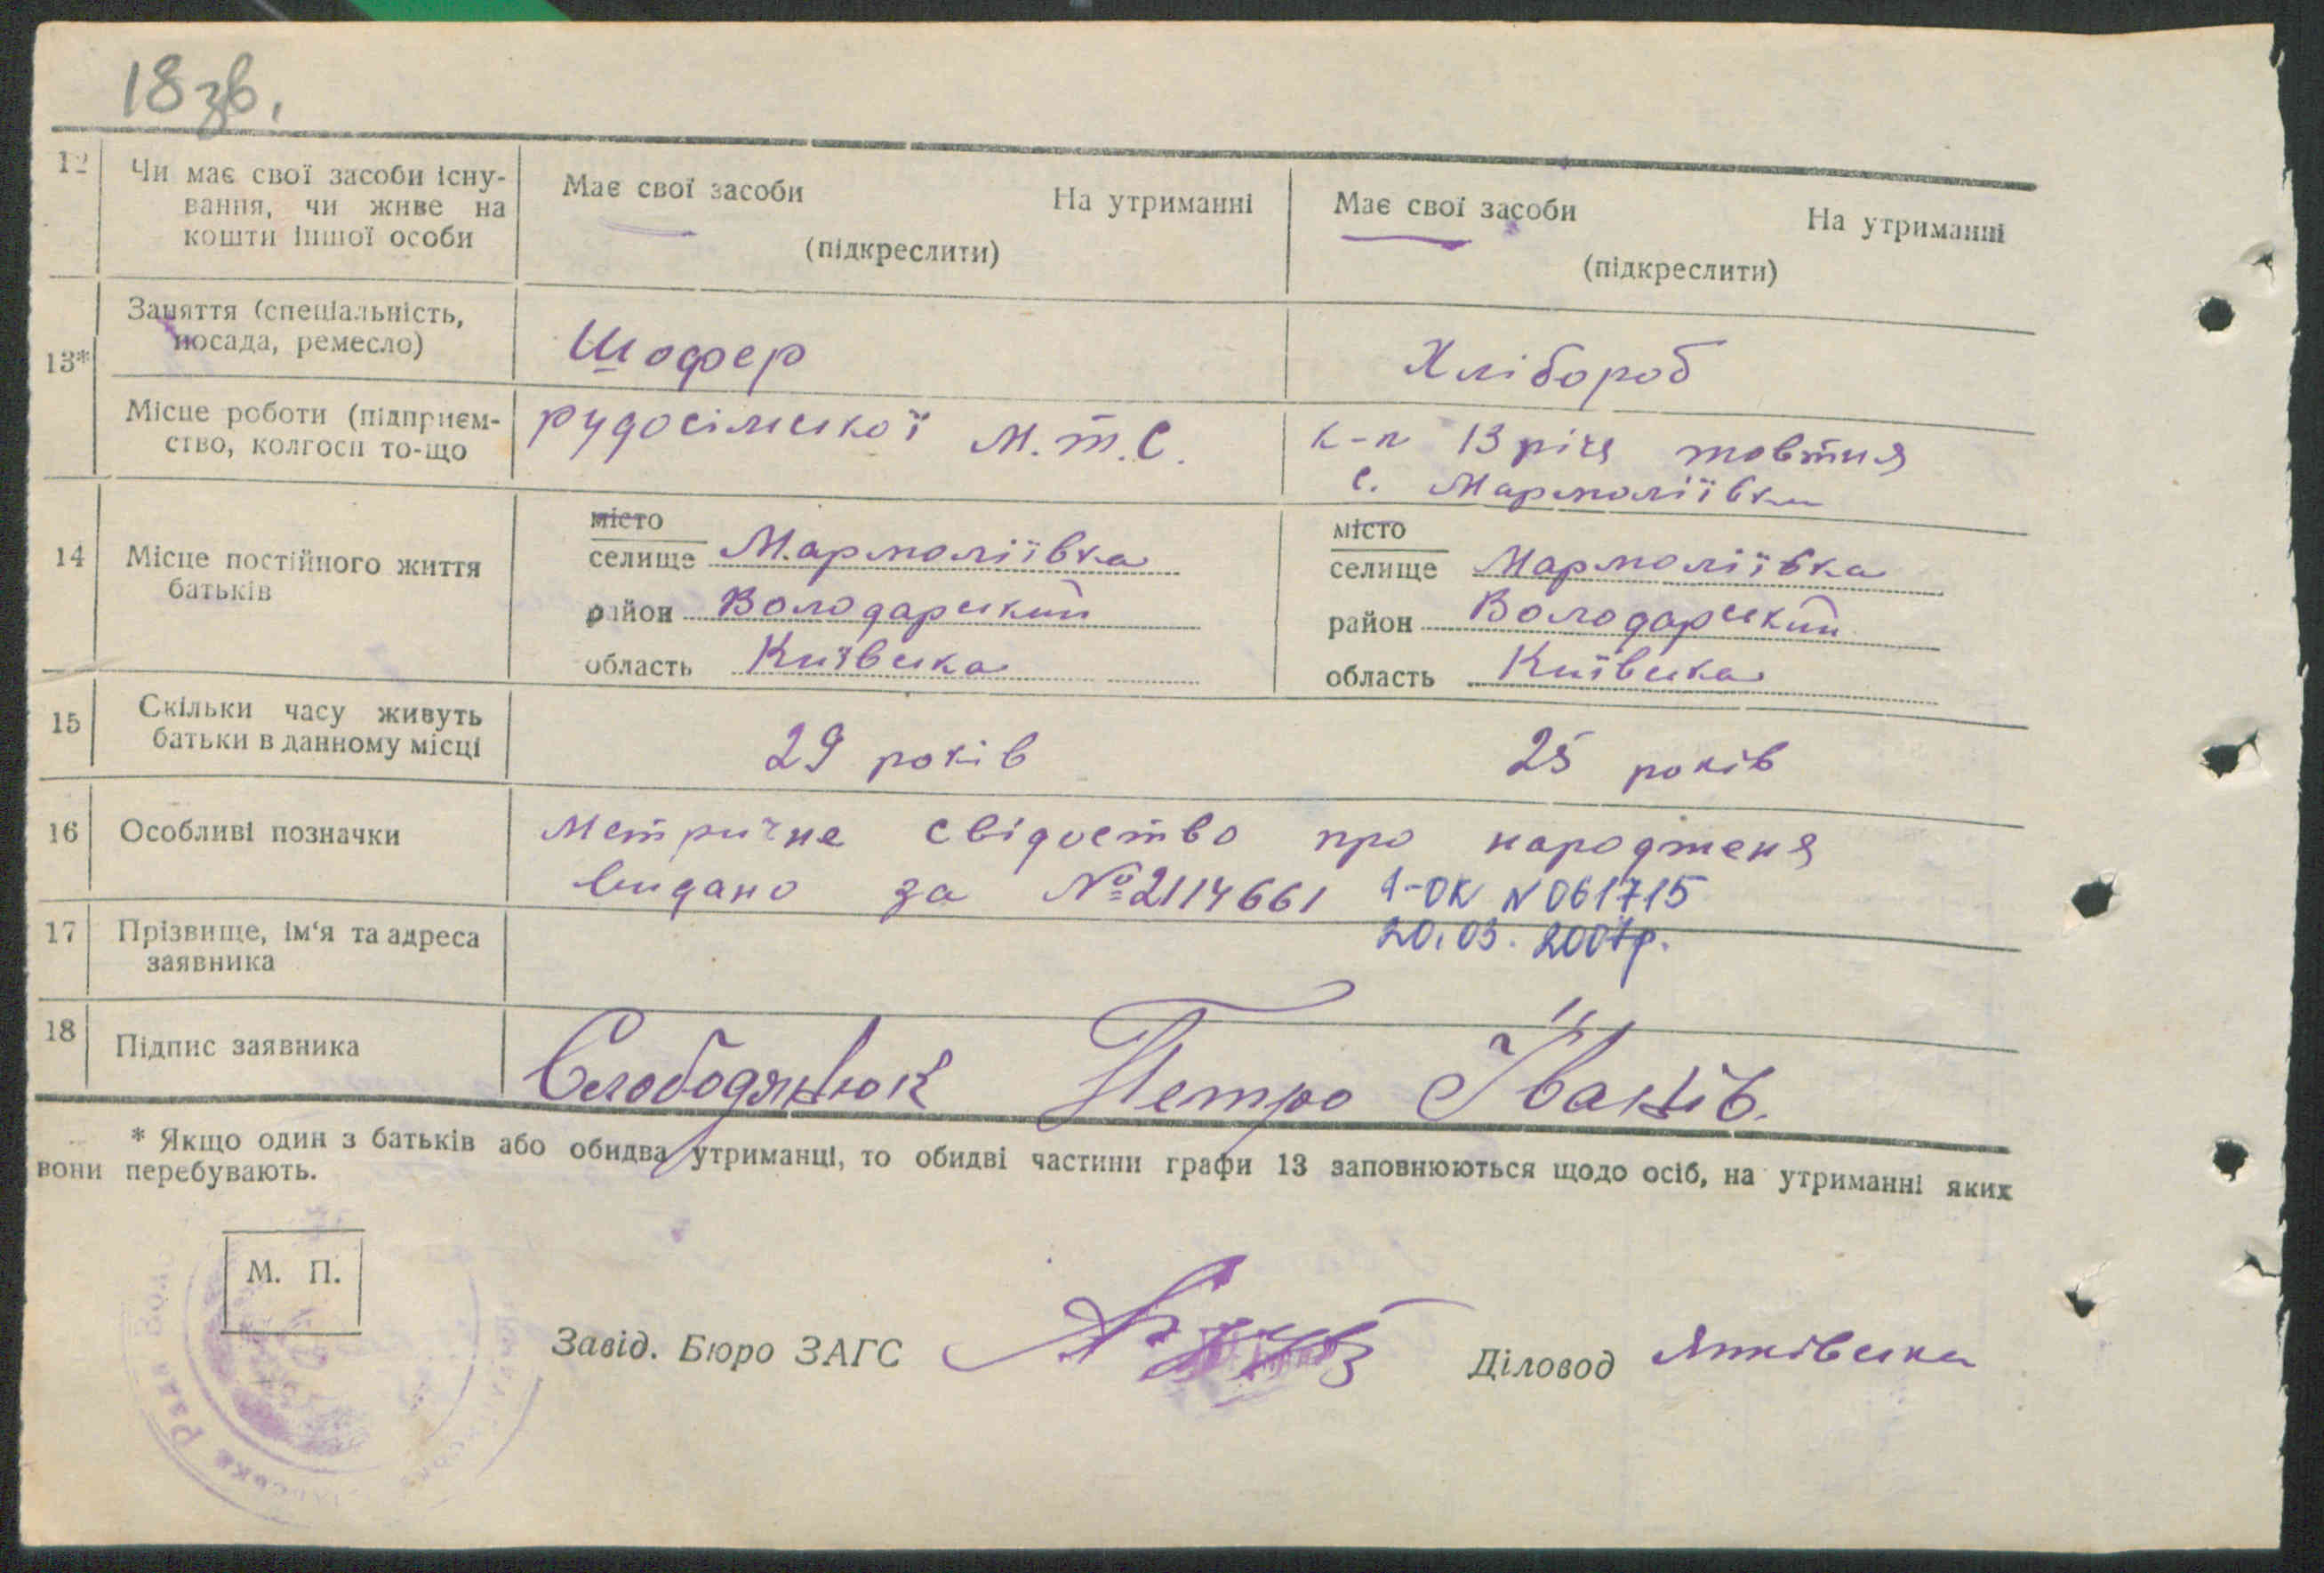 18 зв.
12 Чи має свої засоби існу-
вання, чи живе на
кошти іншої особи
Має свої засоби На утриманні
(підкреслити)
Має свої засоби На утриманні
(підкреслити)
13* Заняття (спеціальність,
посада, ремесло)
Шофер
Хлібороб
Місце роботи (підприєм-
ство, колгосп то-що
рудосільської М.т.С.
к-п 13 річя жовтня
с. Мармоліївки
14 Місце постійного життя
батьків
місто
селище Мармоліївка
район Володарський
область Київська
місто
селище Мармоліївка
район Володарський
область Київська
15 Скільки часу живуть
батьки в данному місці
29 років
25 років
16 Особливі позначки
Метричне свідоство про народженя
видано за № 2114661 1-ОК № 061715
20.03.2007р.
17 Прізвище, ім'я та адреса
заявника
18 Підпис заявника
Слободянюк Петро Іванів.
* Якщо один з батьків або обидва утриманці, то обидві частини графи 13 заповнюються щодо осіб, на утриманні яких
вони перебувають.
М. П.
Завід. Бюро ЗАГС
Діловод